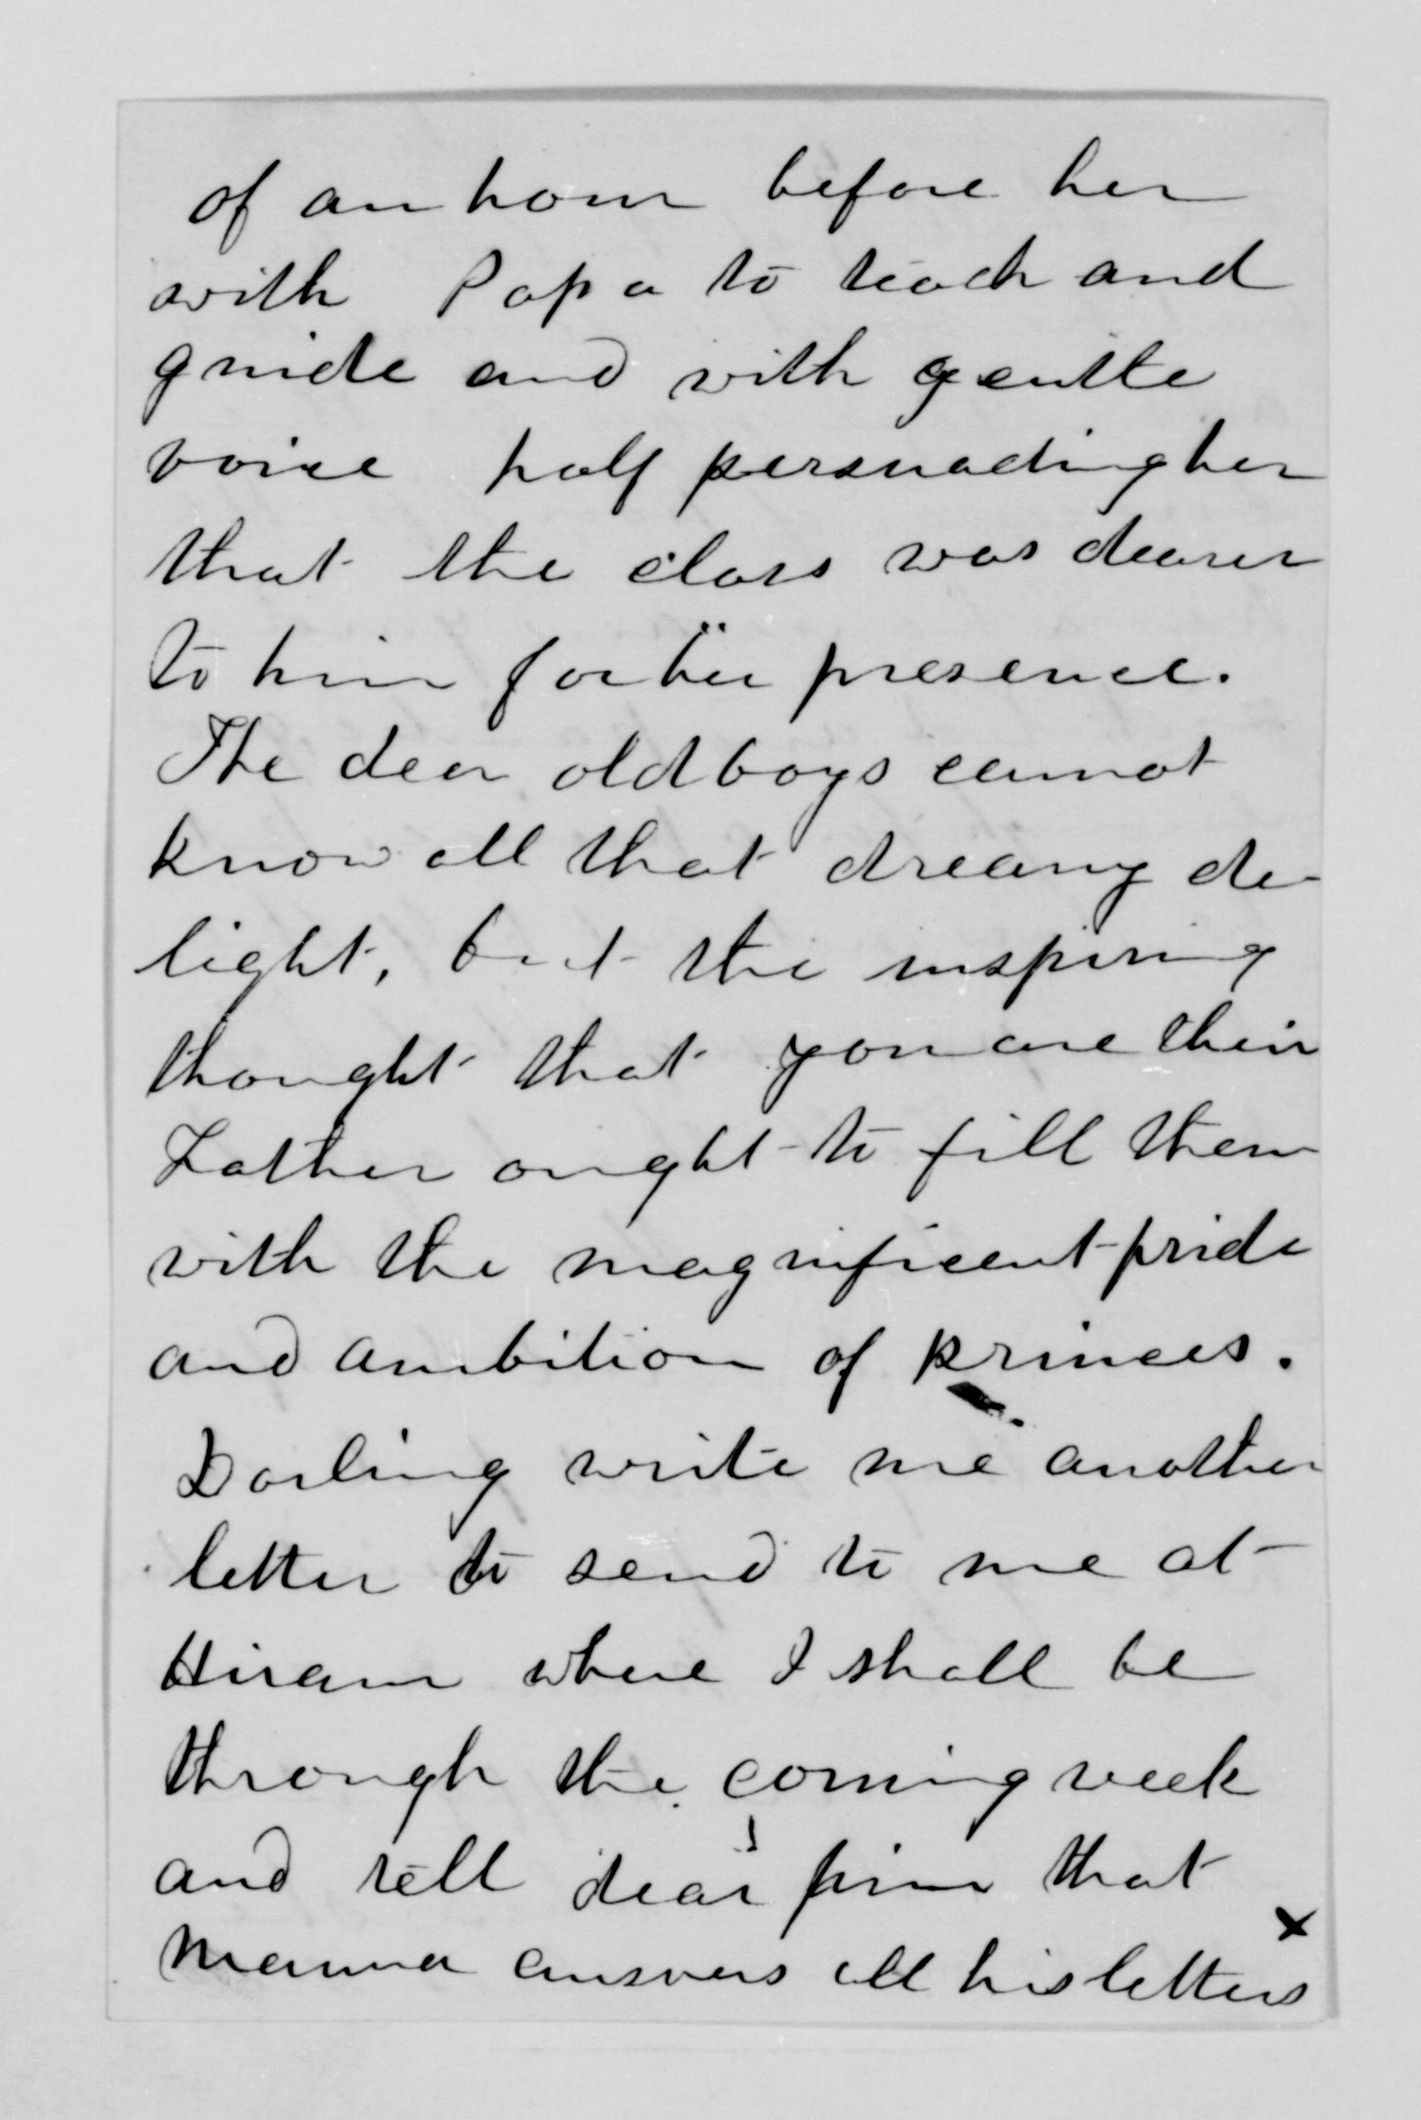 of an hour before her
with Papa to teach and
guide and with gentle
voice half persuading her
that the class was dearer
to him for her presence.
The dear old boys cannot
know all that dreamy de-
light, but the inspiring
thought that you are their
Father ought to fill them
with the magnificent pride
and ambition of princes.
Darling write me another
letter to send to me at
Hiram where I shall be
through the coming week
and tell dear Jim that
Mamma answers all his letters
x